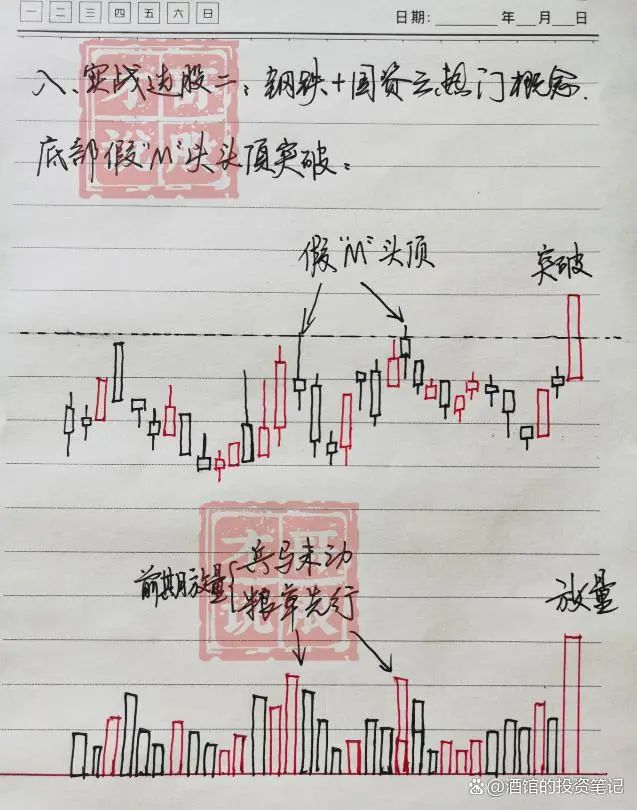 一 二 三 四 五 六 日
日期: 年 月 日
八、实战选股二：钢铁+国资云，热门概念.
底部假"M"头头顶突破：
假"M"头顶
突破
前期放量
兵马未动
粮草先行
放量
@酒馆的投资笔记